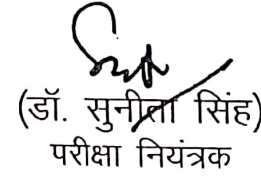 (डॉ. सुनीता सिंह)
परीक्षा नियंत्रक